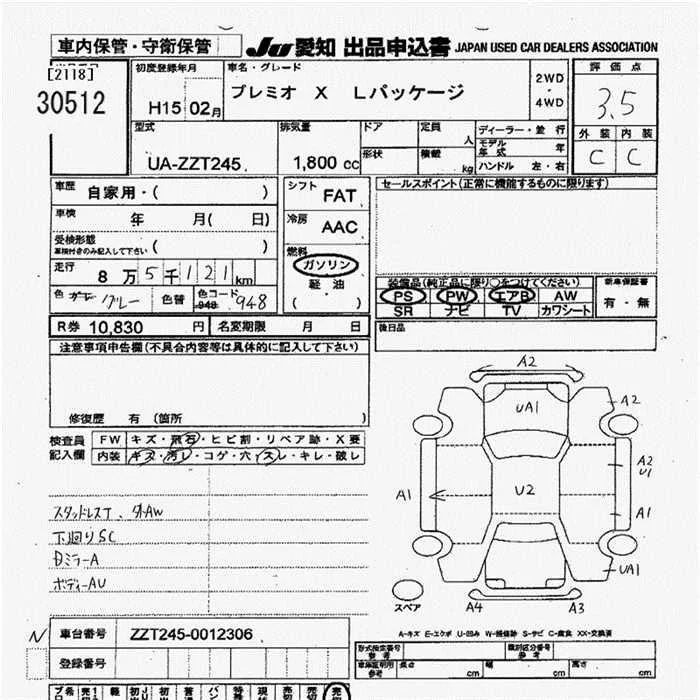 車内保管・守衛保管
Ju 愛知 出品申込書 JAPAN USED CAR DEALERS ASSOCIATION
[2118]
30512
初度登録年月
H15 02月
車名・グレード
プレミオ X Lパッケージ
2WD
・
4WD
評価点
3.5
外装 内装
C C
型式
UA-ZZT245
排気量
1,800 cc
ドア
形状
定員 人
積載 kg
ディーラー・並行
モデル年式 年
ハンドル 左・右
車歴 自家用・( )
車検 年 月( 日)
受検形態
車検付きのみ記入して下さい ( )
走行 8万5千121km
色 グレー 色替 色コード 948 948
シフト FAT
冷房 AAC
燃料
ガソリン
軽油
( )
セールスポイント(正常に機能するものに限ります)
装備品(純正品に限り○をつけてください)
PS PW エアB AW
SR ナビ TV カワシート
新車保証書
有・無
後日品
R券 10,830 円 名変期限 月 日
注意事項申告欄(不具合内容等は具体的に記入して下さい)
修復歴 有 (箇所 )
検査員記入欄
FW キズ・飛石・ヒビ割・リペア跡・X要
内装 キズ・汚レ・コゲ・穴・スレ・キレ・破レ
スタッドレスT、外AW
下廻りSC
Dミラー A
ボディーAU
A2
UA1
A2
A2
U1
A1
U2
A1
UA1
A4
A3
スペア
A-キズ E-エクボ U-凹み W-補修跡 S-サビ C-腐食 XX-交換済
N 車台番号 ZZT245-0012306
登録番号
形式指定番号
参考
類別区分番号
参考
車庫証明用
参考
長さ cm 幅 cm 高さ cm